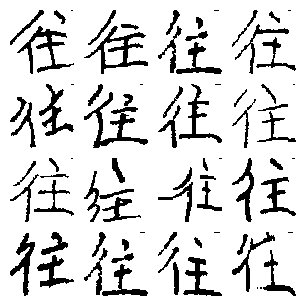 往往往往
往往往往
往往往往
往往往往